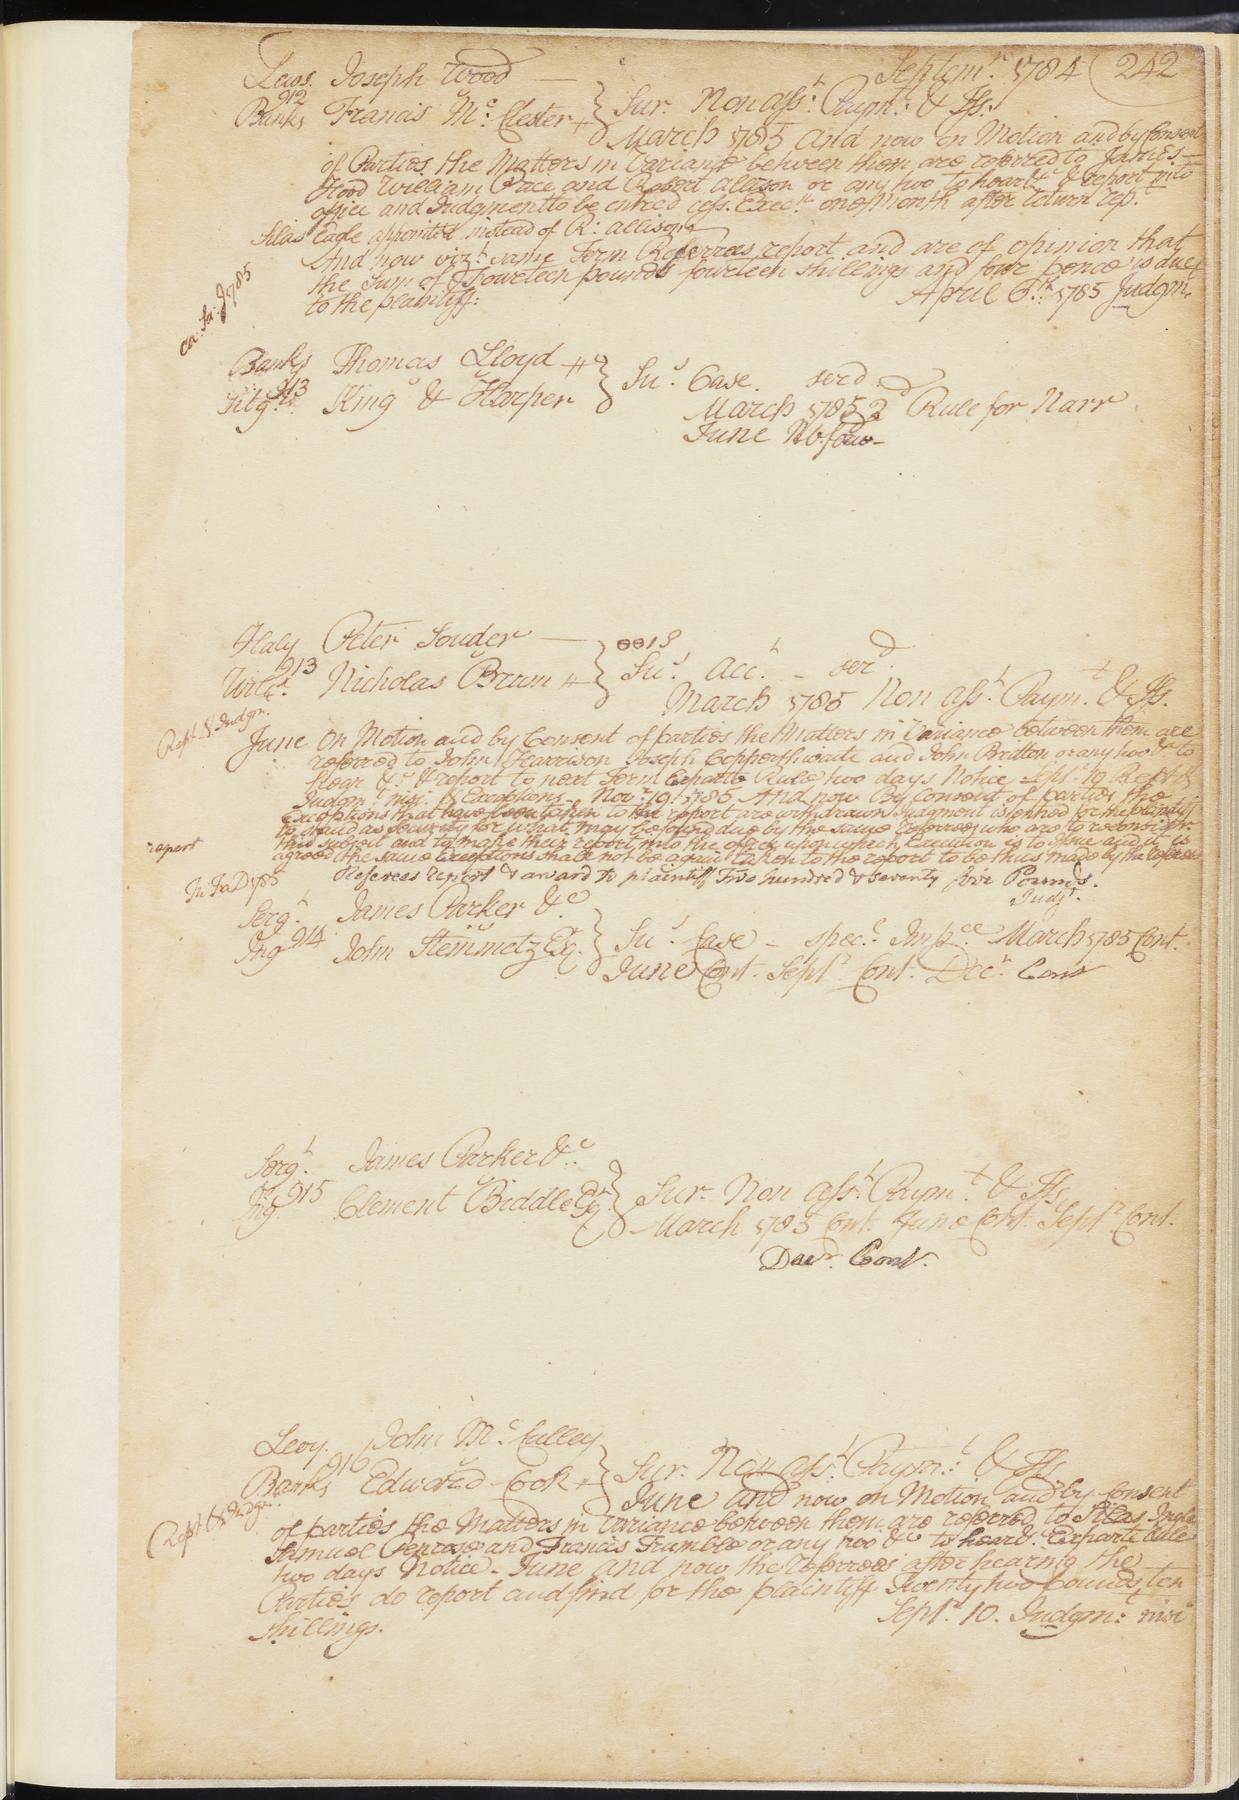 Septemr. 1784 242
Lews. Joseph Wood
912
Banks Francis Mc. Clester } Sur. Non asst. Paymt. & Iss.
March 1785 And now on Motion and by Consent
of Parties the Matters in Variance between them are referred to James
Hood William Price and Robert Allison or any two to hear &c & report into
office and Judgment to be entred cess. Exec. one Month after return rept.
Silas Eagle appointed instead of R: Allison
And now vizt. same Term Referrees report and are of opinion that
the Sum of Fourteen pounds fourteen shillings and four pence is due
to the plaintiff: April 6th. 1785 Judgmt.
ca. sa. J 1785
Banks Thomas Lloyd
913
King & Harper } Su. Case. serd.
March 1785 2d Rule for Narr
June
Haly Peter Souder
913
Wilc. Nicholas Brum } Sus. Acct. - serd.
March 1785 Non asst. Paymt. & Iss.
Rept. & Judgmt.
June On Motion and by Consent of parties the Matters in Variance between them are
referred to John Harrison Joseph Copperthwaite and John Britton or any two &c to
Hear &c. & report to next Term Exparte Rule two days Notice Sept. 19 Rept. &
Judgmt. nisi. Exceptions - Novr. 19. 1785 And now By Consent of parties the
Exceptions that have been taken to the report are withdrawn Judgment is entred for the plaintiff
to stand as security for what may be found due by the same Referrees who are to reconsider
this subject and to make their report into the office upon which Execution is to issue and it is
report
agreed the same Exceptions shall not be again taken to the report to be thus made by the referrees
Referees report & award to plaintiff Two hundred & seventy five Pounds.
Judgt.
Sergt. James Parker &c
Ing 914 John Steinmetz Esqr. } Su. Case - specl. Impce. March 1785 Cont.
June Cont. Septr. Cont. Decr. Cont
Sergt. James Parker &c.
Ing 915 Clement Biddle Esqr. } Sur. Non asst. Paymt. & Iss
March 1785 Cont. June Cont. Septr. Cont.
Decr. Cont.
Levy. John Mc. Culley
916
Banks Edward Cook } Sur. Non asst. Paymt. & Iss
June And now on Motion and by Consent
Rept. & Judgmt.
of parties the Matters in Variance between them are referred to Silas Ingle
Samuel Penrose and Francis Trumble or any two &c to hear &c. Exparte Rule
two days Notice - June and now the referrees after hearing the
Parties do report and find for the plaintiff Twenty two pounds ten
shillings. Septr. 10. Judgmt. nisi